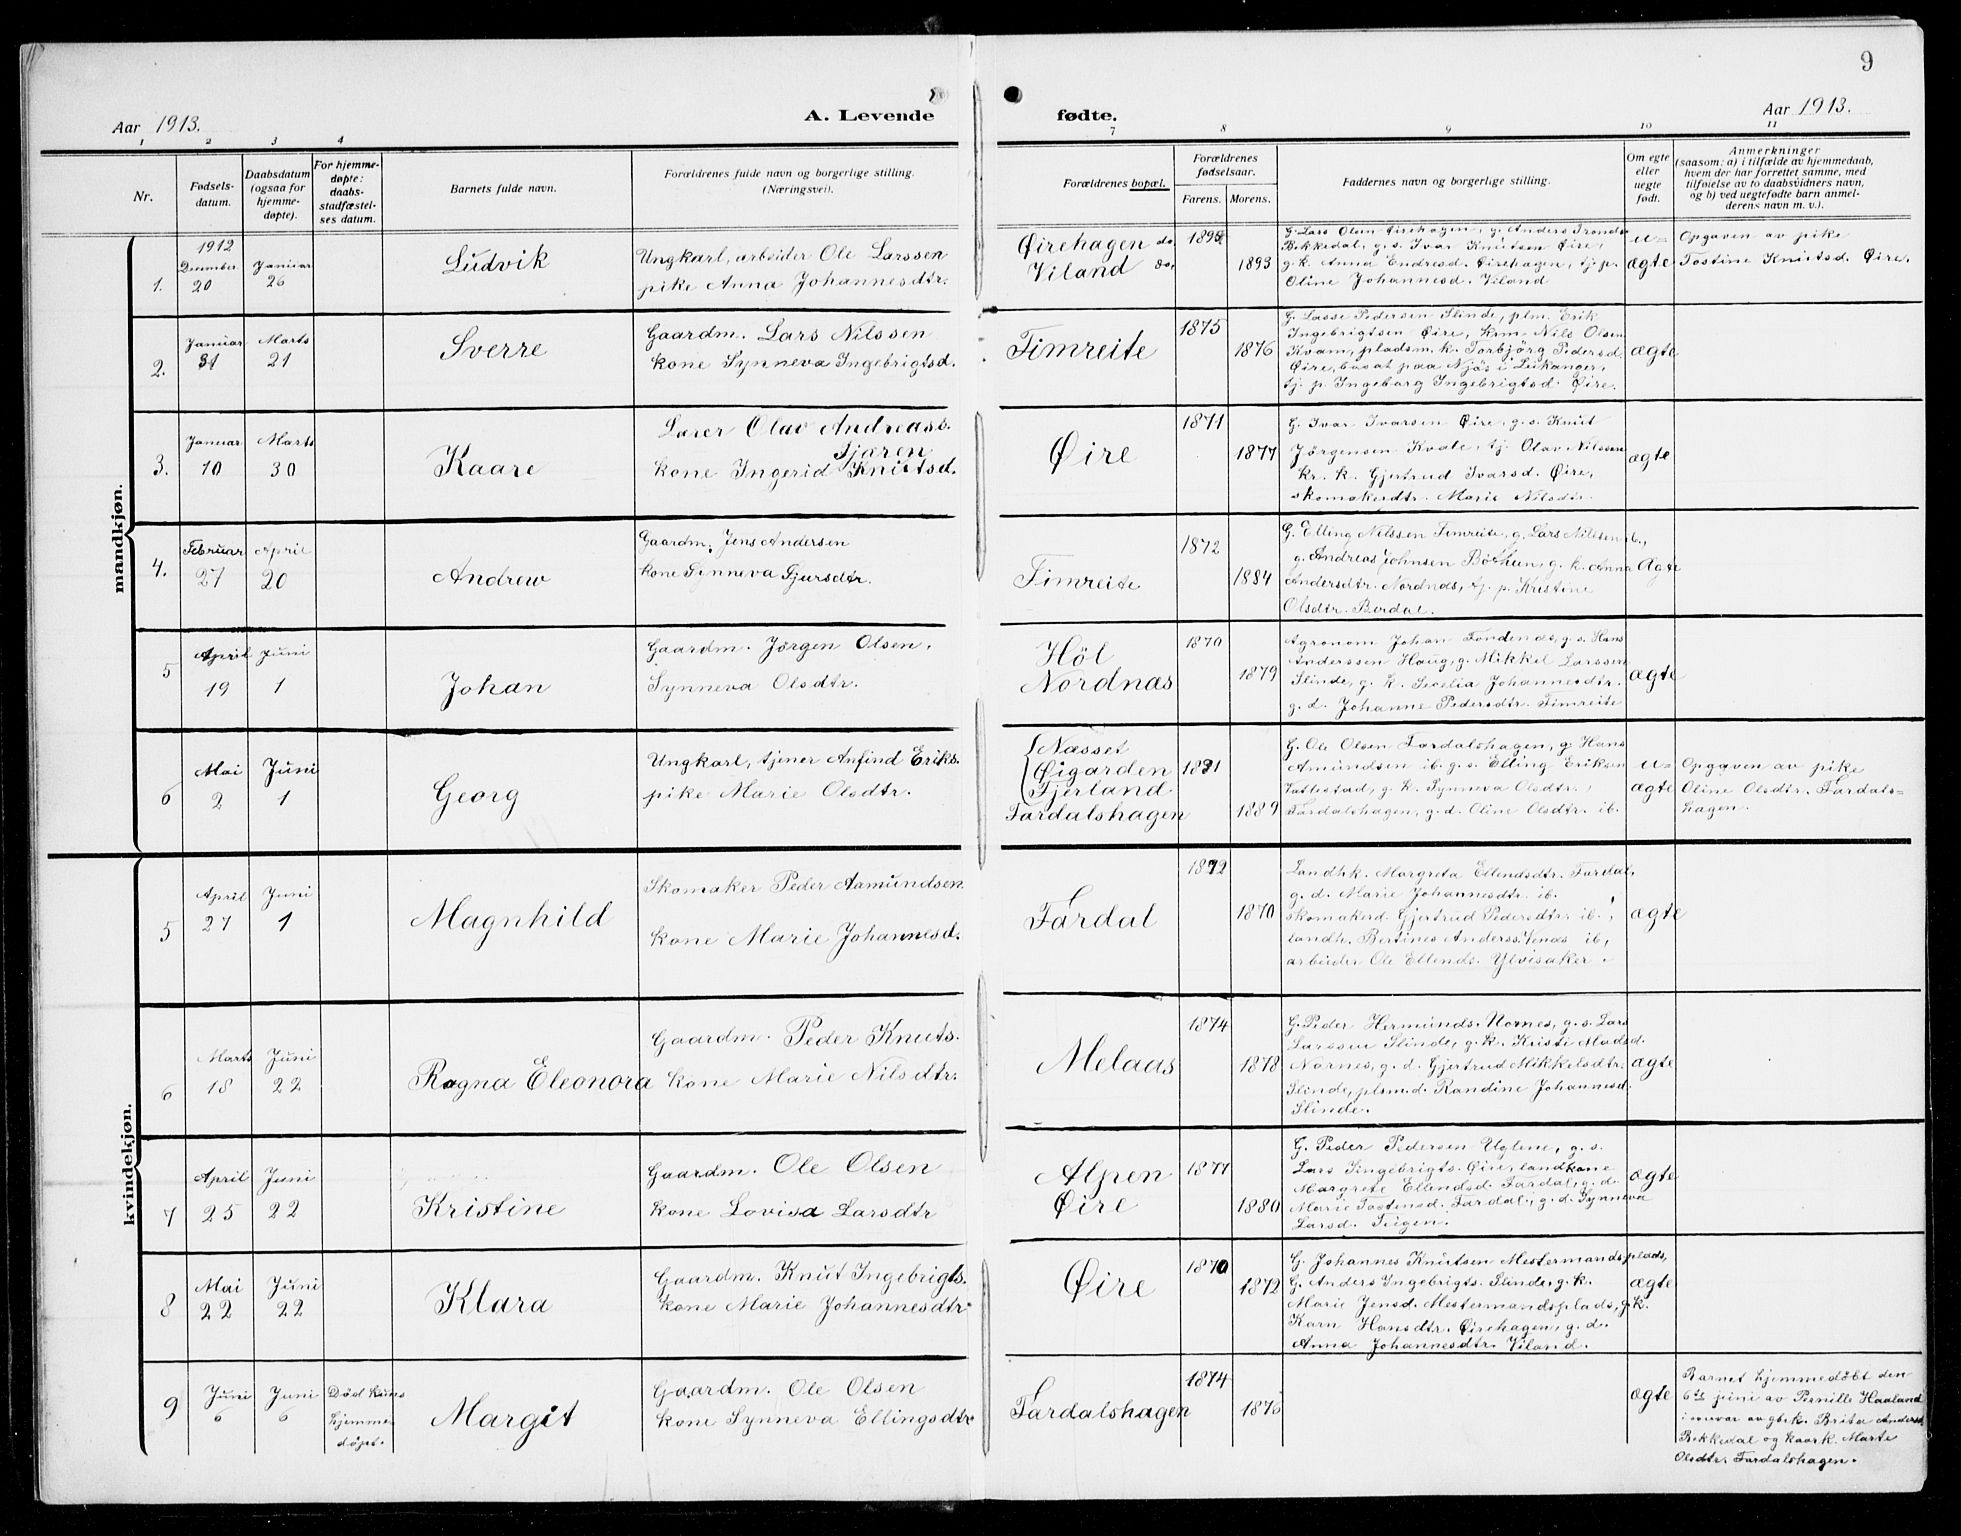 9
Aar 1913.
A. Levende
fødte.
Aar 1913.
1 2 3 4 7 8 9 10 11
Nr.
Fødsels-
datum.
Daabsdatum
(ogsaa for
hjemme-
døpte).
For hjemme-
døpte:
daabs-
stadfæstel-
ses datum.
Barnets fulde navn.
Forældrenes fulde navn og borgerlige stilling.
(Næringsvei).
Forældrenes bopæl.
Forældrenes
fødselsaar.
Farens. Morens.
Faddernes navn og borgerlige stilling.
Om egte
eller
uegte
født.
Anmerkninger
(saasom: a) i tilfælde av hjemmedaab,
hvem der har forrettet samme, med
tilføielse av to daabsvidners navn,
og b) ved uegtefødte barn anmel-
derens navn m. v.).
mandkjøn.
1.
1912
December
20
Januar
26
Ludvik
Ungkarl, arbeider Ole Larssen
pike Anna Johannesdtr.
Øirehagen do
Viland do,
1895
1893
G. Lars Olsen Øirehagen, g. Anders Tronds
Bekkedal, g. s. Ivar Knutsen Øire,
g. k. Anna Endresd. Øirehagen, tj. p.
Oline Johannesd. Viland
u=
ægte
Opgaven av pike
Tostine Knutsd. Øire.
2.
Januar
31
Marts
21
Sverre
Gaardm. Lars Nilssen
kone Synneva Ingebrigtsd.
Fimreite
1875
1876
G. Lasse Pedersen Slinde, plm. Erik
Ingebrigtsen Øire, krm. Nils Olsen
Kvam, pladsm. k. Torbjörg Pedersd.
Øire, bosat paa Njøs i Leikanger,
tj. p. Ingeborg Ingebrigtsd. Øire.
ægte
3.
Januar
10
Marts
30
Kaare
Lærer Olav Andreass.
Fjæren
kone Ingerid Knutsd.
Øire
1871
1877
G. Ivar Ivarsen Øire, g. s. Knut
Jørgensen Kvale, tj. Olav Nilssen
kr. k. Gjertrud Ivarsd. Øire,
skomakerdtr. Marie Nilsdtr.
ægte
4.
Februar
27
April
20
Andrew
Gaardm. Jens Andersen
kone Synneva Sjursdtr.
Fimreite
1872
1884
G. Elling Nilssen Fimreite, g. Lars Nilssen ib.,
g. Andreas Johnsen Böthun, g. k. Anna
Andersdtr. Nordnæs, tj. p. Kristine
Olsdtr. Berdal.
Ægte
5
April
19
Juni
1
Johan
Gaardm. Jørgen Olsen,
Synneva Olsdtr.
Høl
Nordnæs
1870
1879
Agronom Johan Tondenæs, g. s. Hans
Anderssen Haug, g. Mikkel Larssen
Slinde, g. k. Secelia Johannesdtr.
g. d. Johanne Pedersdtr. Fimreite
ægte
6
Mai
2
Juni
1
Georg
Ungkarl, tjener Anfind Eriks.
pike Marie Olsdtr.
Næsset
Øigarden
Fjerland
Fardalshagen
1891
1889
G. Ole Olsen Fardalshagen, g. Hans
Amundsen ib. g. s. Elling Eriksen
Vattestad, g. k. Synneva Olsdtr.,
Fardalshagen, g. d. Oline Olsdtr. ib.
u=
ægte
Opgaven av pike
Oline Olsdtr. Fardals=
hagen.
kvindekjøn.
5
April
27
Juni
1
Magnhild
Skomaker Peder Aamundsen
kone Marie Johannesd.
Fardal
1872
1870
Landhk. Margreta Ellendsdtr. Fardal,
g. d. Marie Johannesdtr. ib.
skomakerd. Gjertrud Pedersdtr. ib.,
landh. Bertines Anderss. Venæs ib,
arbeider Ole Ellends. Ylvisaker.
ægte
6
Marts
18
Juni
22
Ragna Eleonora
Gaardm. Peder Knuts.
kone Marie Nilsdtr.
Melaas
1874
1878
G. Peder Hermunds. Nornes, g. s. Lars
Larssen Slinde, g. k. Kristi Madsd.
Nornes, g. d. Gjertrud Mikkelsdtr.
Slinde, plsm. d. Randine Johannesd.
Slinde.
ægte
7
April
25
Juni
22
Kristine
Gaardm. Ole Olsen
kone Lovisa Larsdtr
Alpen
Øire
1877
1880
G. Peder Pedersen Uglene, g. s.
Lars Ingebrigts. Øire, landkone
Margrete Ellendsd. Fardal, g. d.
Marie Tostensd. Fardal, g. d. Synneva
Larsd. Tugen.
ægte
8
Mai
22
Juni
22
Klara
Gaardm. Knut Ingebrigts.
kone Marie Johannesdtr.
Øire
1870
1872
G. Johannes Knutsen Mestermandsplads,
G. Anders Ingebrigts. Slinde, g. k.
Marie Jensd. Mestermandsplads, g. k.
Karn Hansdtr. Øirehagen, g. d.
Anna Johannesdtr. Viland.
ægte
9
Juni
6
Juni
6
Död kuns
hjemme
döpt.
Margit
Gaardm. Ole Olsen
kone Synneva Ellingsdtr.
Fardalshagen
1874
1876
ægte
Barnet hjemmedöbt den
6te juni av Pernille Haaland
i nærvær av gbr. k. Brita Andersd.
Bekkedal og kaark. Marte
Olsdtr. Fardalshagen.